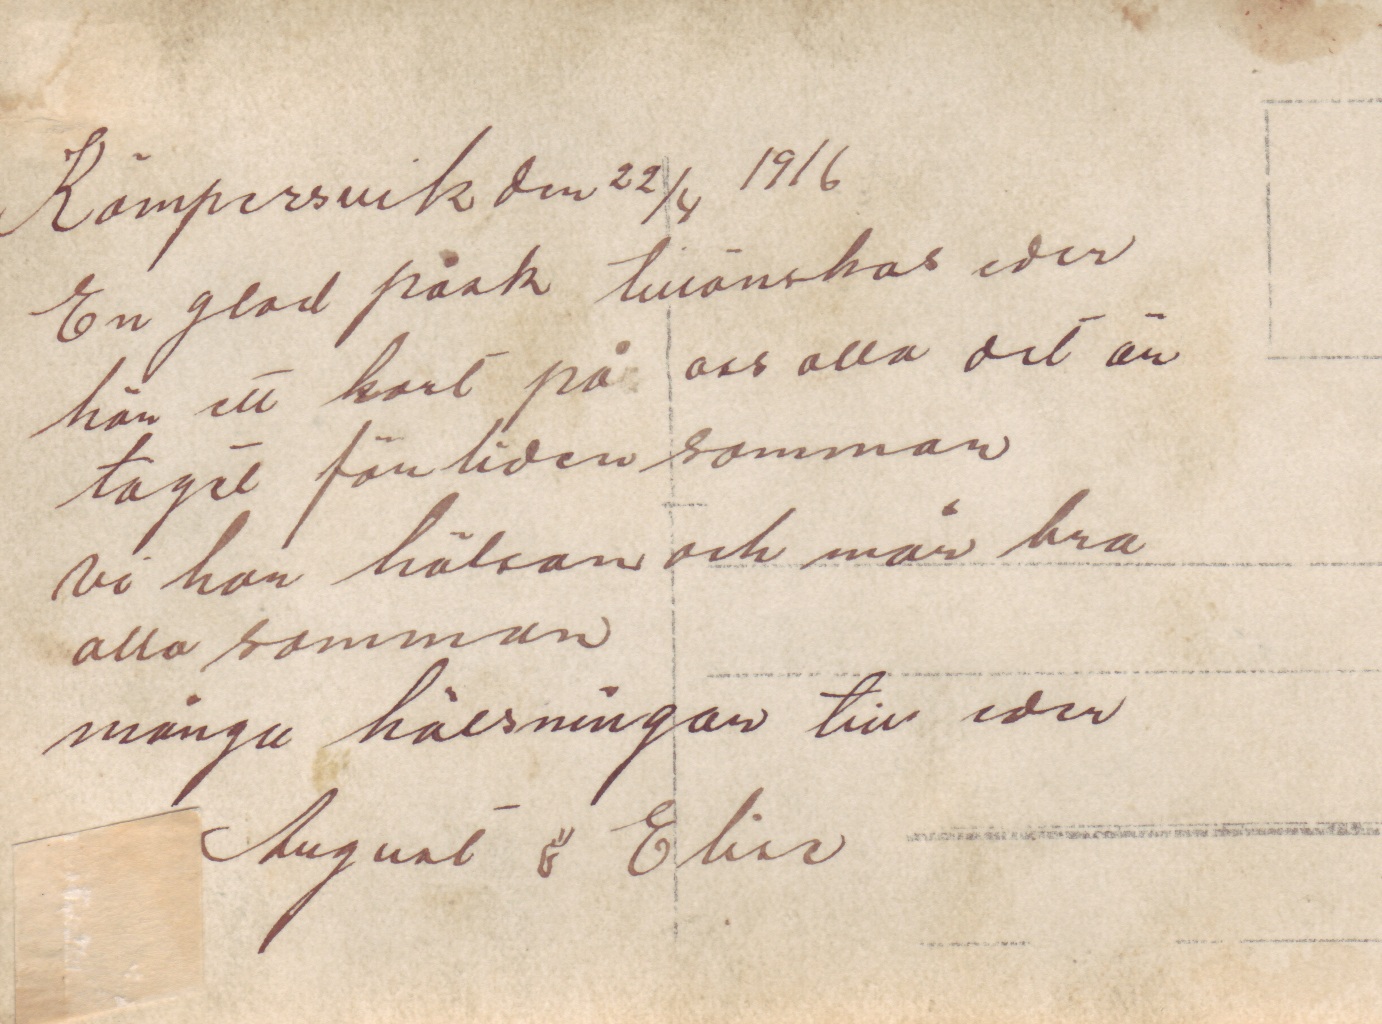 Kämpersvik den 22/4 1916
En glad påsk tillönskas eder
här ett kort på oss alla det är
taget förliden sommar
Vi har hälsan och mår bra
alla samman
många hälsningar till eder
August & Elise